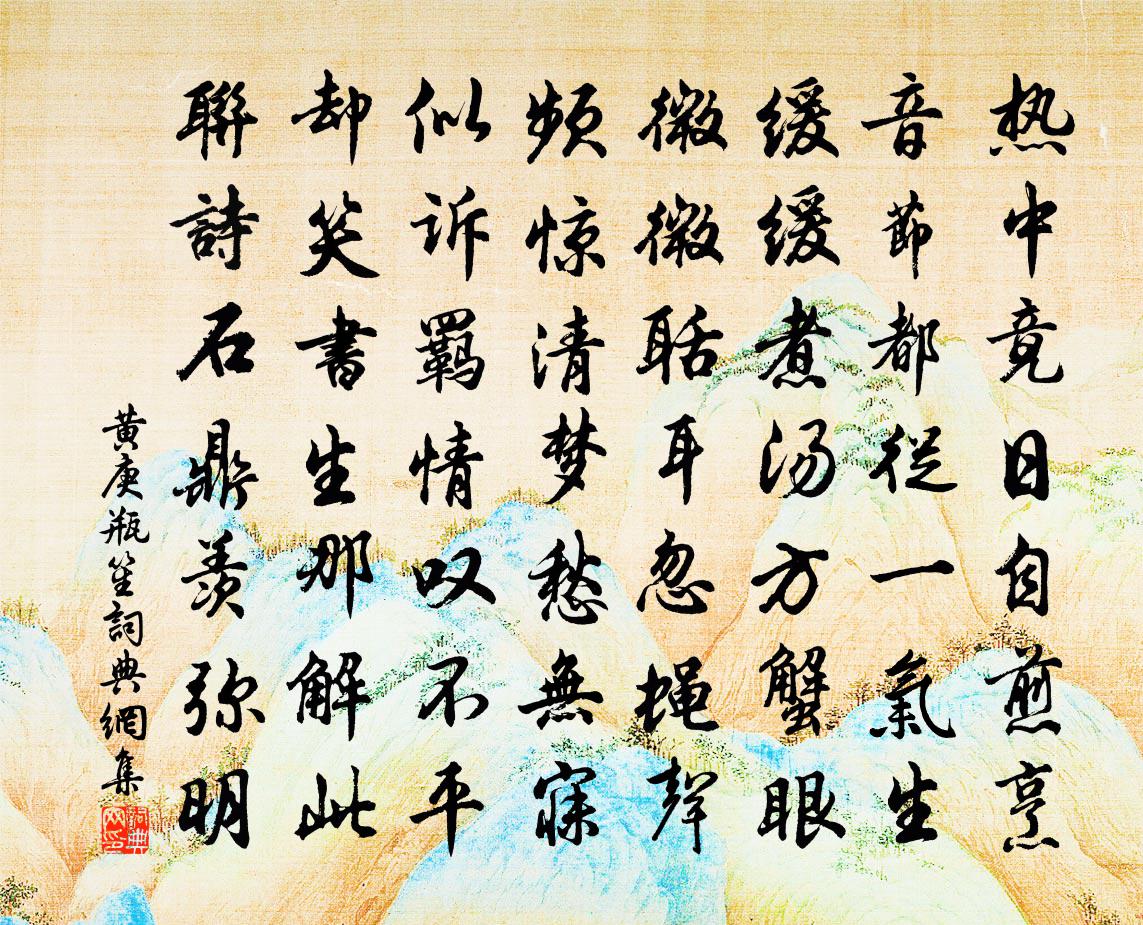 热中竟日自煎烹
音節都從一氣生
缓缓煮汤方蟹眼
微微聒耳忽蝇聲
频惊清梦愁無寐
似诉羁情叹不平
却笑書生那解此
聯詩石鼎羡弥明
黄庚瓶笙詞典網集
詞典網印